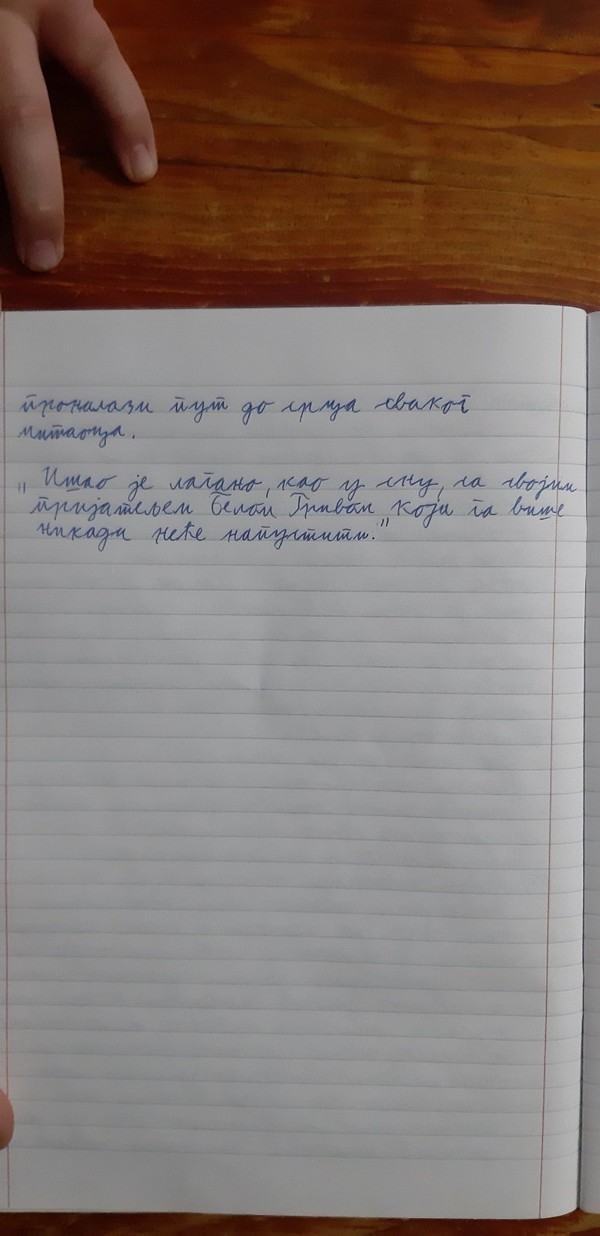 проналази пут до срца сваког
читаоца.
„Ишао је лагано, као у сну, са својим
пријатељем Белом Гривом који га више
никада неће напустити."